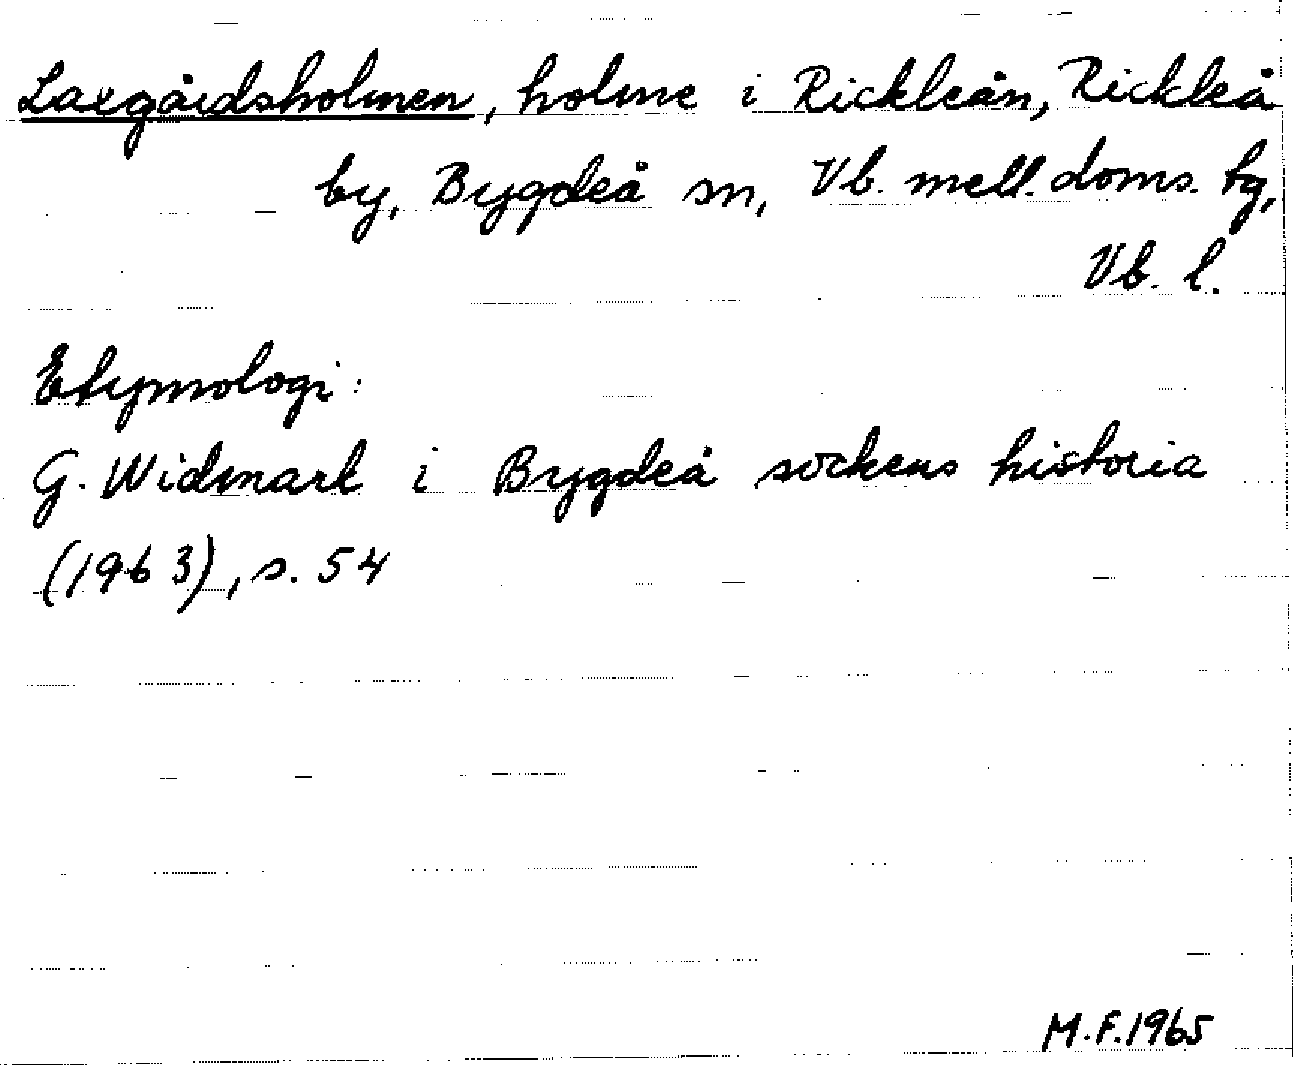 Laxgårdsholmen, holme i Rickleån, Rickleå
by, Bygdeå sn, Vb. mell. doms. tg,
Vb. l.
Etymologi:
G. Widmark i Bygdeå sockens historia
(1963), s. 54
M.F. 1965